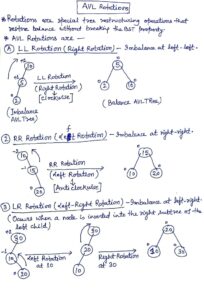 AVL Rotations
* Rotations are special tree restructuring operations that
restore balance without breaking the BST property.
* AVL Rotations are —
A LL Rotation (Right Rotation) - Imbalance at left-left.
LL Rotation
(Right Rotation)
[clockwise]
15
10
20
(Imbalance
AVL Tree)
(Balance AVL Tree)
2 RR Rotation (Left Rotation) - Imbalance at right-right.
10
15
20
RR Rotation
(Left Rotation)
[Anti clockwise]
15
10
20
3 LR Rotation (Left-Right Rotation) - Imbalance at left-right.
(Occurs when a node is inserted into the right subtree of the
left child)
10
20
Left Rotation
at 10
30
20
10
Right Rotation
at 30
20
30